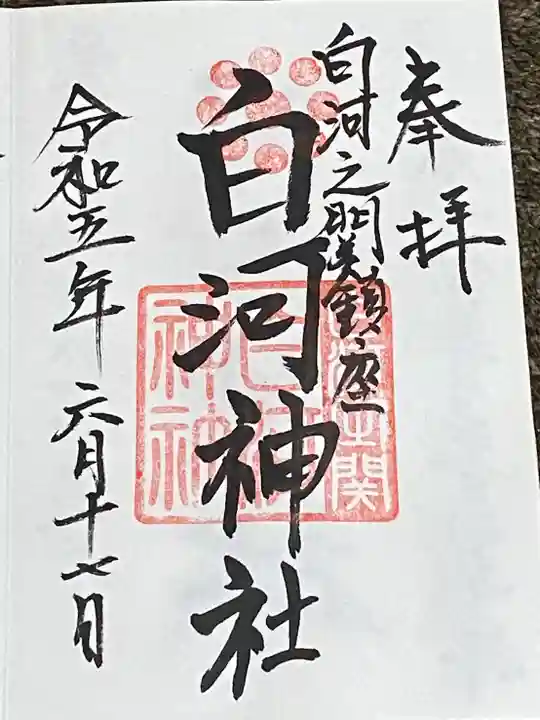 奉拝
白河之関鎮座
白河神社
令和五年六月十七日